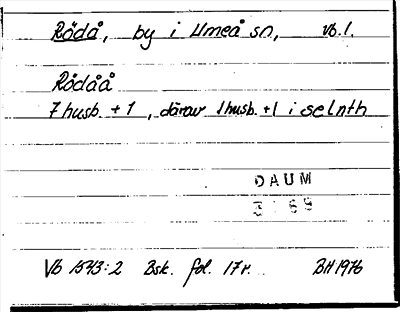 Rödå, by i Umeå sn, Vb.l.
Rödåå
7 husb. + 1, därav 1 husb. +1 i selnth
DAUM
3189
Vb 1543:2 Bsk. fol. 17r. BH 1976